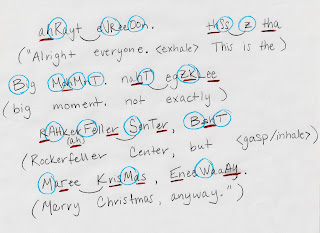 ahRayt eVReeOOn. thSs z tha
("Alright everyone. <exhale> This is the )
Big MahMnT. nahT egZKLee
(big moment. not exactly )
RAHkerFeller SenTer, BahT
(ah)
(Rockerfeller Center, but <gasp/inhale>
Maree KrisMas, EneeWaaAy.
(Merry Christmas, anyway.")